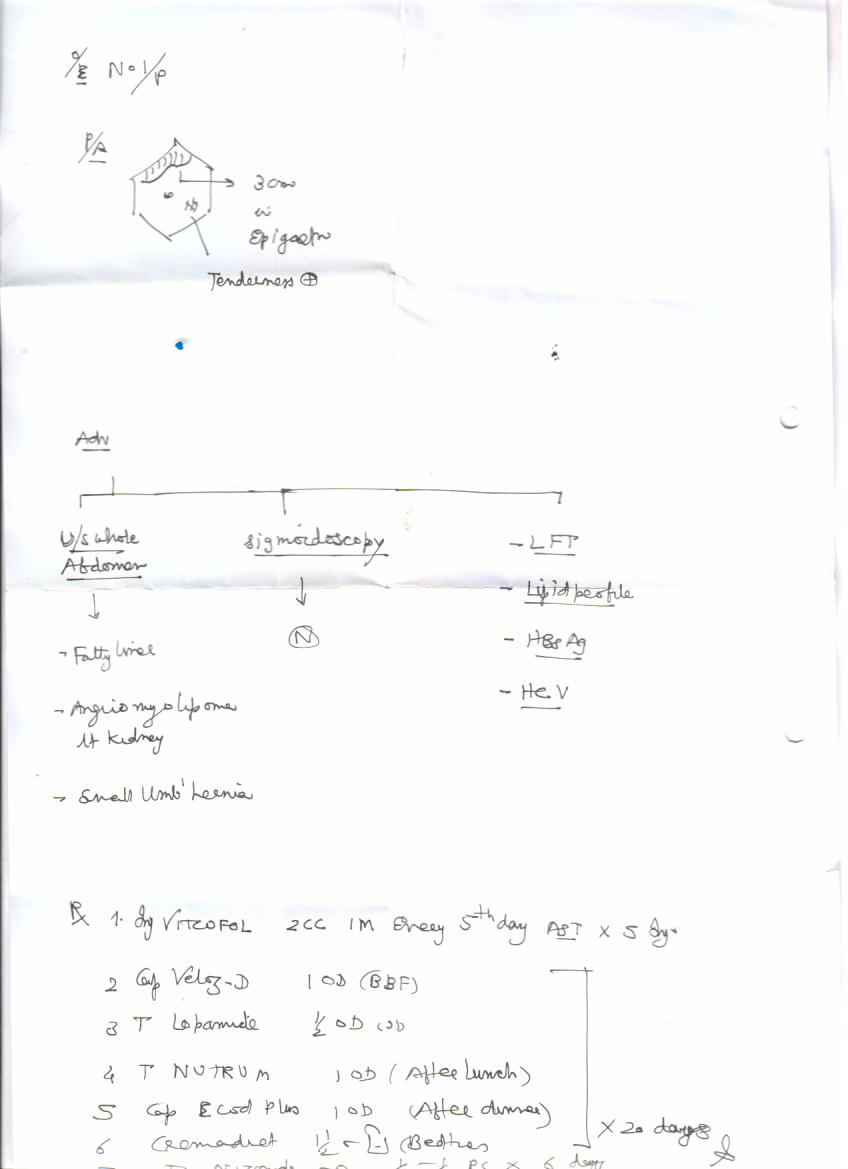 O/E No I/P
P/A
3 cm
in
Epigastr
Tenderness ⊕
Adv
U/s whole
Abdomen
sigmoidoscopy
- LFT
- Lipid profile
- HBsAg
- HCV
N
- Fatty liver
- Angiomyolipoma
lt kidney
- Small Umb' hernia
Rx 1. Inj VITCOFOL 2CC IM Every 5th day AST x 5 Inj.
2 Cap Veloz-D 1 OD (BBF)
3 T Lopamide ½ OD
4 T NUTRUM 1 OD (After lunch)
5 Cap Ecod Plus 1 OD (After dinner)
x 20 days
6 Cremadiet (Bedtime)
PC x 6 days